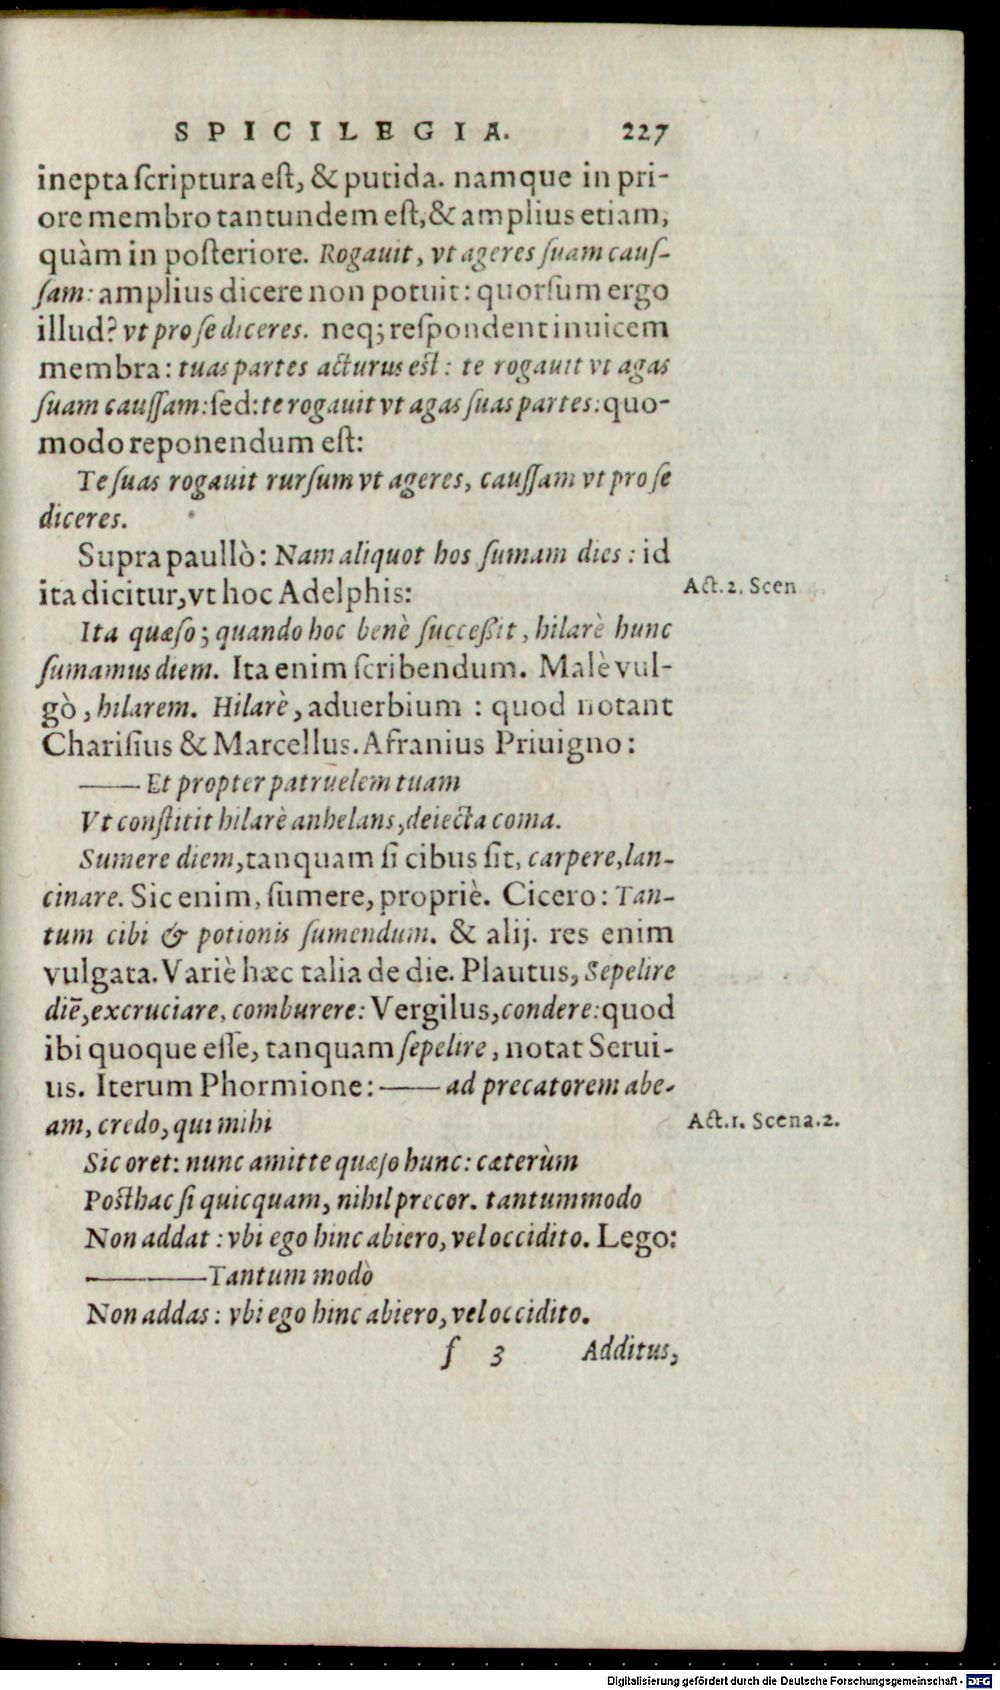 SPICILEGIA. 227
inepta ſcriptura eſt, & putida. namque in pri-
ore membro tantundem eſt, & amplius etiam,
quàm in poſteriore. Rogauit, vt ageres ſuam cauſ-
ſam: amplius dicere non potuit: quorſum ergo
illud? vt pro ſe diceres. neq; reſpondent inuicem
membra: tuas partes acturus eſt: te rogauit vt agas
ſuam cauſſam: ſed: te rogauit vt agas ſuas partes: quo-
modo reponendum eſt:
Te ſuas rogauit rurſum vt ageres, cauſſam vt pro ſe
diceres.
Supra paullò: Nam aliquot hos ſumam dies: id
ita dicitur, vt hoc Adelphis:
Act. 2. Scen
Ita quæſo; quando hoc benè ſucceßit, hilarè hunc
ſumamus diem. Ita enim ſcribendum. Malè vul-
gò, hilarem. Hilarè, aduerbium: quod notant
Chariſius & Marcellus. Afranius Priuigno:
—— Et propter patruelem tuam
Vt conſtitit hilarè anhelans, deiecta coma.
Sumere diem, tanquam ſi cibus ſit, carpere, lan-
cinare. Sic enim, ſumere, propriè. Cicero: Tan-
tum cibi & potionis ſumendum. & alij. res enim
vulgata. Variè hæc talia de die. Plautus, Sepelire
diē, excruciare, comburere: Vergilus, condere: quod
ibi quoque eſſe, tanquam ſepelire, notat Serui-
us. Iterum Phormione: —— ad precatorem abe-
am, credo, qui mihi
Act. 1. Scena. 2.
Sic oret: nunc amitte quæſo hunc: cæterùm
Poſthac ſi quicquam, nihil precor. tantummodo
Non addat: vbi ego hinc abiero, vel occidito. Lego:
——— Tantum modò
Non addas: vbi ego hinc abiero, vel occidito.
f 3 Additus,
Digitalisierung gefördert durch die Deutsche Forschungsgemeinschaft - DFG